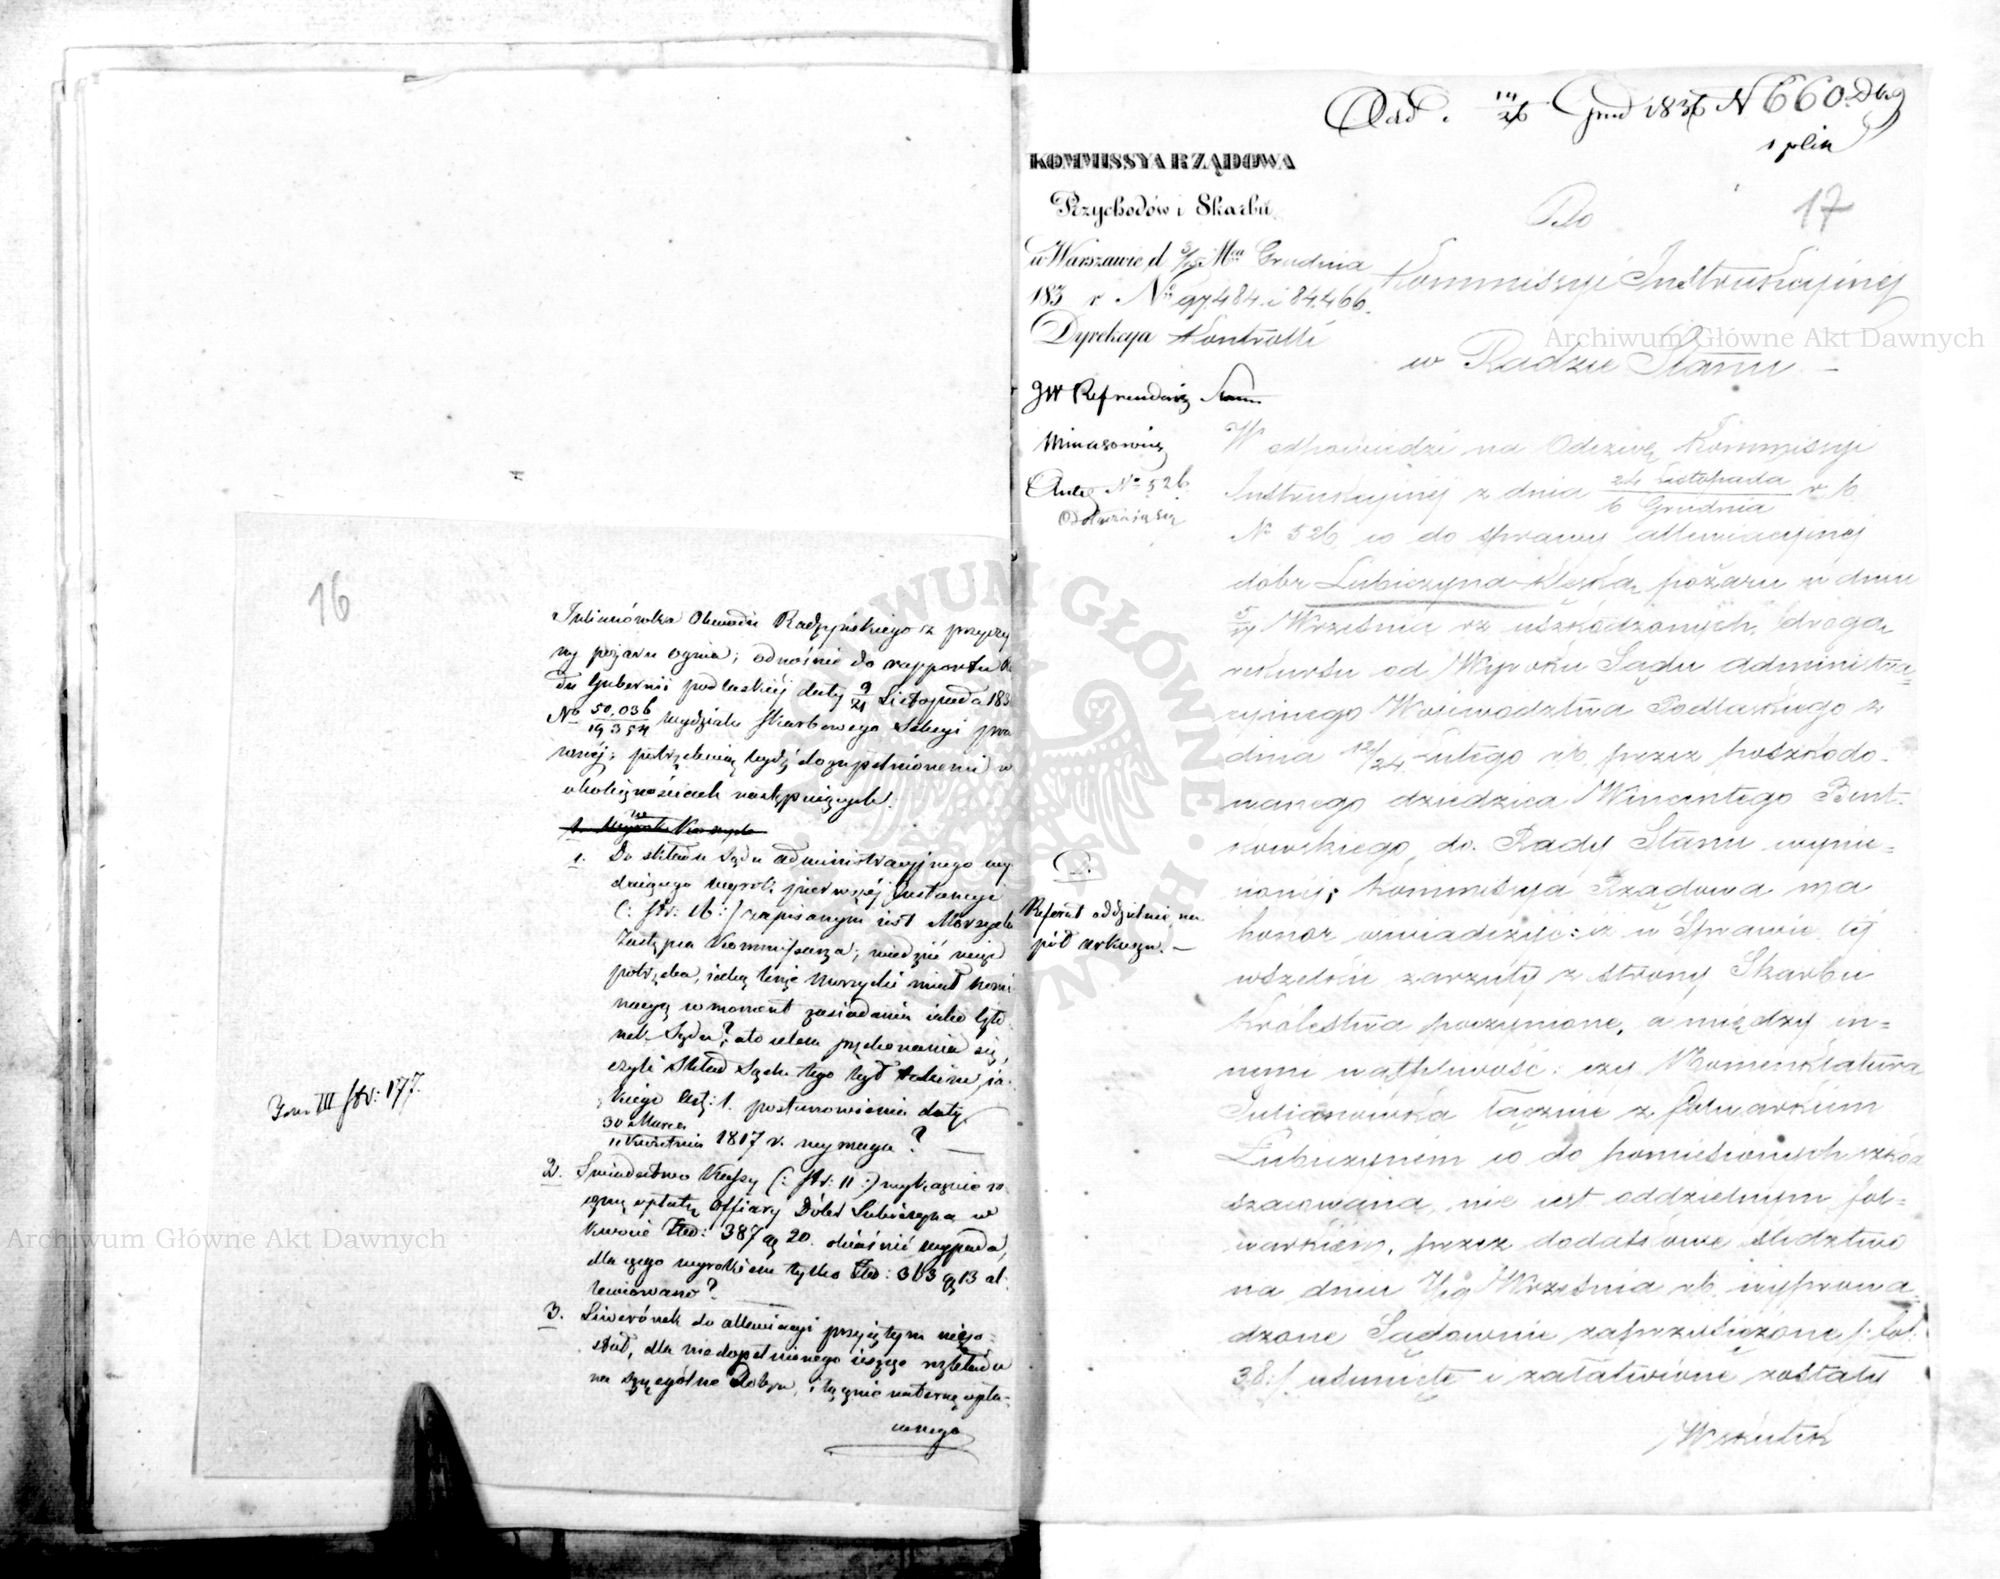 16
Julianówka Obwodu Radzyńskiego z przyczy
ny pożaru ognia; odnośnie do rapportu Rzą
du Gubernii podlaskiéj daty 9/21 Listopada 183
No 50,036/19354 wydziału skarbowego Sekcyi pra
wnéj; potrzebnią bydź dozupełnionemi w
okolicznościach następujących:
1. Do składu Sądu administracyjnego wy
dającego wyrok pierwszéj Instancyi
(: str: 16 :) zapisanym jest Marszycki
Zastępca Kommissarza; wiedzieć więc
potrzeba, jaką tenże Marszycki miał nomi
nacyą w moment zasiadania jako Czło
nek Sądu? a to celem przekonania się,
czyli Skład Sądu tego był takim, ja-
kiego Art: 1. postanowienia daty
30 Marca
11 Kwietnia 1817 r. wymaga?
Tom III str: 177.
2. Świadectwo Kassy (: str: 11 :) wykazuie ro
czną opłatę Offiary Dóbr Lubiczyna w
kwocie Złp: 387 gr 20. obiaśnić wypada,
dla czego wyrokiem tylko Złp: 363 gr 13 al
lewiowano?
3. Liwerónek do allewiacyi przyjętym niezo-
stał, dla niedopełnionego ieszcze rozkładu
na szczególne Dobra, i łącznie na teraz opła-
canego
Odd. 14/26 Grud 1836 N 660. Dbg
1 plik
17
KOMMISSYA RZĄDOWA
Przychodów i Skarbu
w Warszawie d 3/15 Mca Grudnia
183 r No 97.484. i 84.466.
Dyrekcya Kontrolli
JW Referendarz Stanu
Minasowicz
Ante No 526.
Do
Kommissyi Instrukcyjnéj
w Radzie Stanu
W odpowiedzi na Odezwę Kommissyi
Instrukcyjnéj z dnia 24 Listopada/6 Grudnia r b
No 526, co do sprawy allewiacyjnéj
dóbr Lubiczyna klęską pożaru w dniu
5/17 Września rz uszkodzonych, drogą
rekursu od Wyroku Sądu Administra-
cyjnego Województwa Podlaskiego z
dnia 12/24 Lutego rb. przez poszkodo-
wanego dziedzica Wincentego But-
rowskiego, do Rady Stanu wynie-
sionéj; Kommissya Rządowa ma
honor oświadczyć: iż w Sprawie téj
wszelkie zarzuty z strony Skarbu
Królestwa poczynione, a między in-
nymi wątpliwość: czy Nomenklatura
Julianówka łącznie z folwarkiem
Lubiczynem co do poniesionych szkód
szacowana, nie jest oddzielnym fol-
warkiem, przez dodatkowe śledztwo
na dniu 7/19 Września rb. wyprowa-
dzone Sądownie zaprzysiężone /: fol:
38:/ usunięte i załatwione zostały
Wskutek
D.
Referat oddzielnie na
pół arkuszu. —
Archiwum Główne Akt Dawnych
Archiwum Główne Akt Dawnych
ARCHIWUM GŁÓWNE AKT DAWNYCH